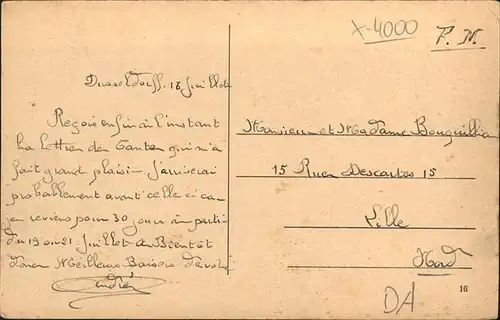 x-4000
F. M.
Dusseldorff. 18 Juillet
Reçois enfin à l'instant
ta lettre de Tante qui m'a
fait grand plaisir - J'arriverai
probablement avant celle ci car
je reviens pour 30 jours à partir
du 19 ou 21 Juillet - A Bientôt
donc Meilleurs Baisers de votre
André
Monsieur et Madame
15 Rue Descartes 15
Lille
Nord
DA
16